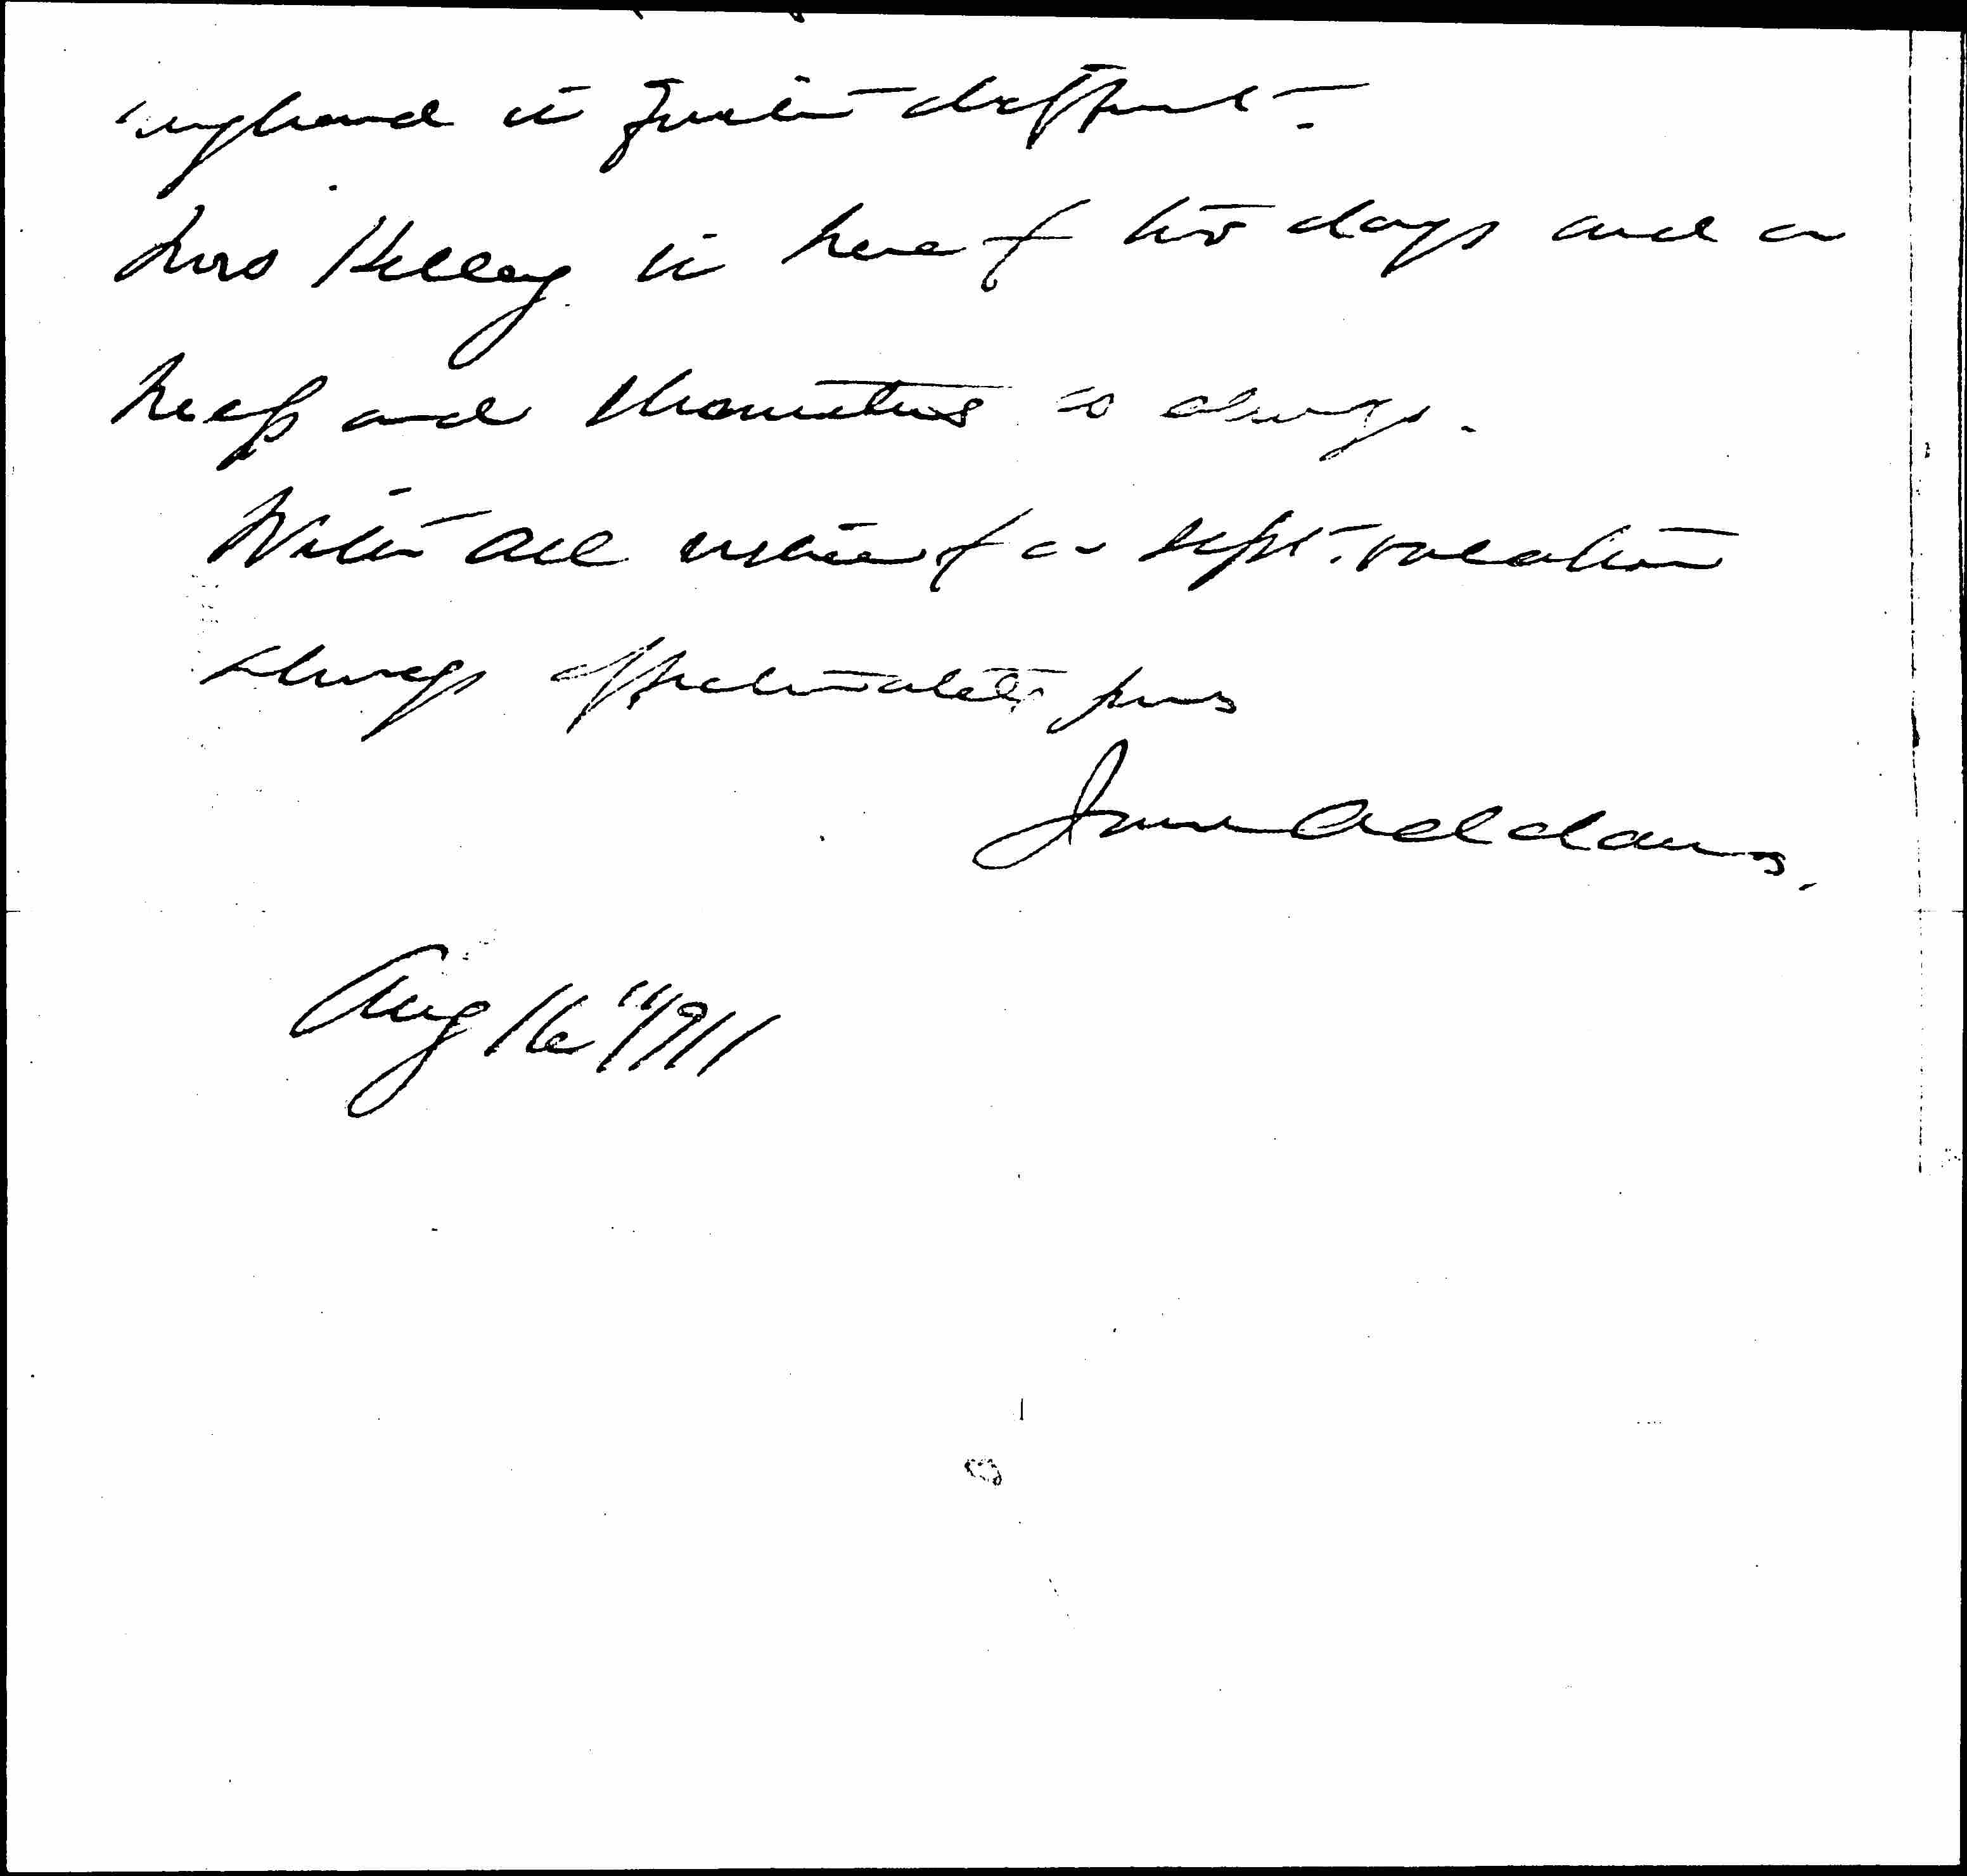 England is quite different -
Mrs Kelley is here for two days and a
heap and
With all wishes for a Sept. vacation
always affectionately yours
Jane Addams.
Aug 16" 1911